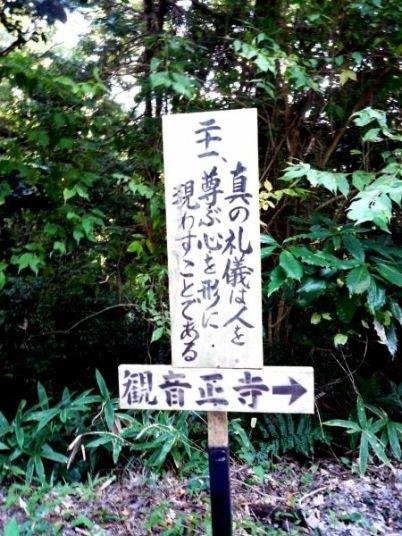 二十一、真の礼儀は人を
尊ぶ心を形に
現わすことである
観音正寺→